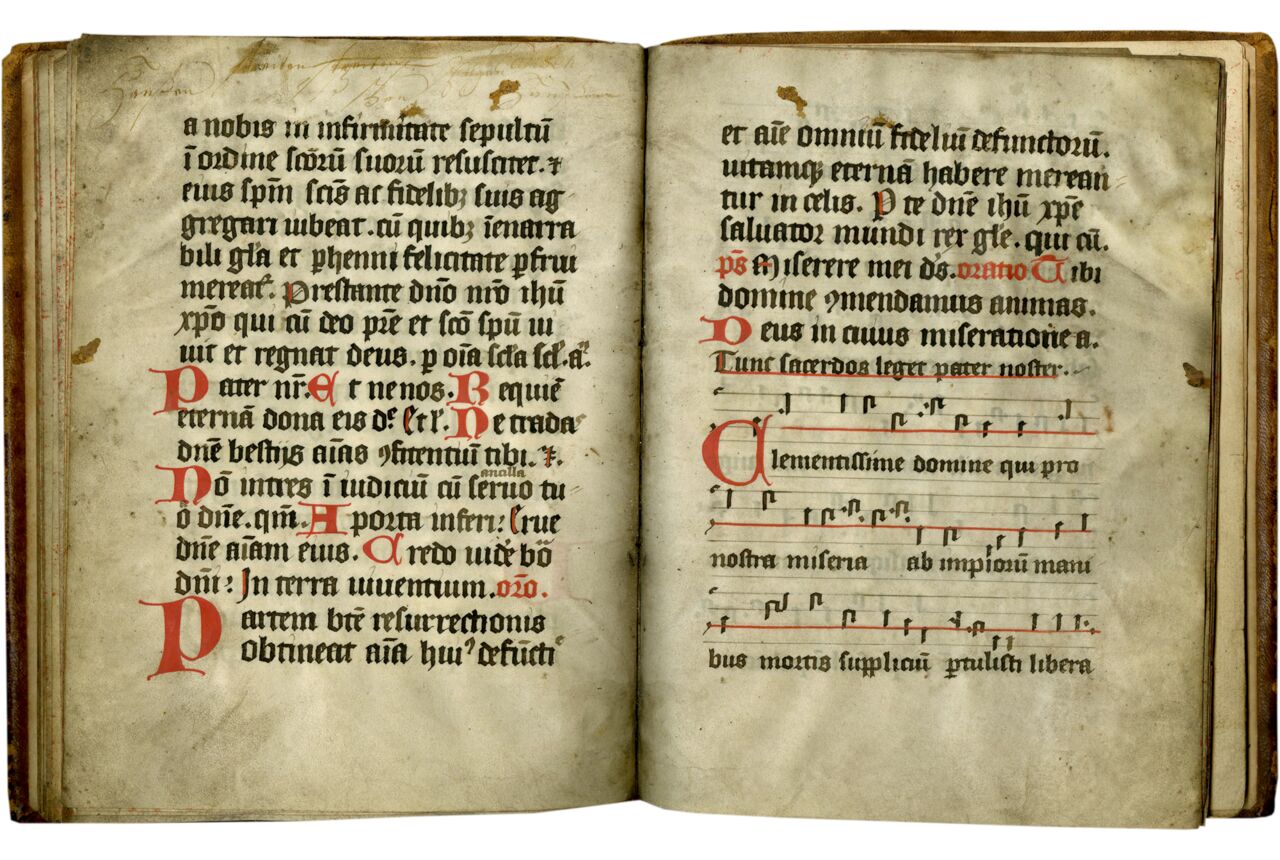 a nobis in infirmitate sepultū
ī ordine scōrū suorū resuscitet. ⁊
eius spm̄ scīs ac fidelibꝫ suis ag
gregari iubeat. cū quibꝫ īenarra
bili gl̄a et ꝑhenni felicitate ꝑfrui
mereat᷑. Prestante dn̄o nr̄o ihū
xp̄o qui cū deo pr̄e et scō spū ui
uit et regnat deus. ꝑ oīa scl̄a scl̄. a
Pater nr̄. Et ne nos. Requiē
eternā dona eis d. Et l. Ne tradas
dn̄e bestijs aīas ꝯfitentiū tibi. ⁊.
ancilla
Nō intres ī iudiciū cū seruo tu
o dn̄e. qm̄. A porta inferi: Erue
dn̄e aīam eius. Credo uidē bō
dn̄i: In terra uiuentium. orō.
Partem btē resurrectionis
obtineat aīa huiꝰ defūcti
et aīe omniū fideliū defunctorū.
uitamqꝫ eternā habere merean
tur in celis. P te dn̄e ihū xp̄e
saluator mundi rex gl̄e. qui cū.
ps̄ Miserere mei ds̄. oratio Tibi
domine ꝯmendamus animas.
Deus in cuius miseratione a.
Tunc sacerdos leget pater noster.
Clementissime domine qui pro
nostra miseria ab impiorū mani
bus mortis suppliciū ꝑtulisti libera